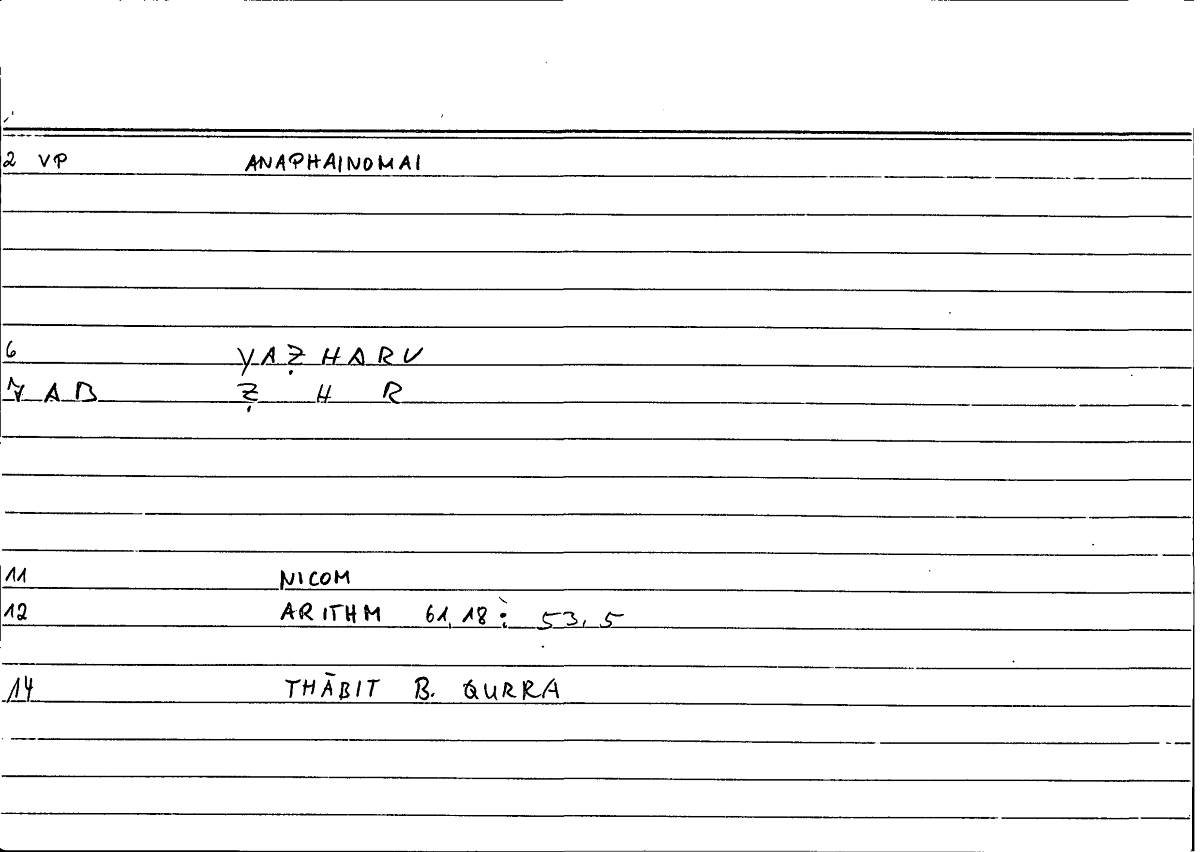 2 VP ANAPHAINOMAI
6 YAẒHARU
7 AB Ẓ H R
11 NICOM
12 ARITHM 61,18 : 53,5
14 THĀBIT B. QURRA